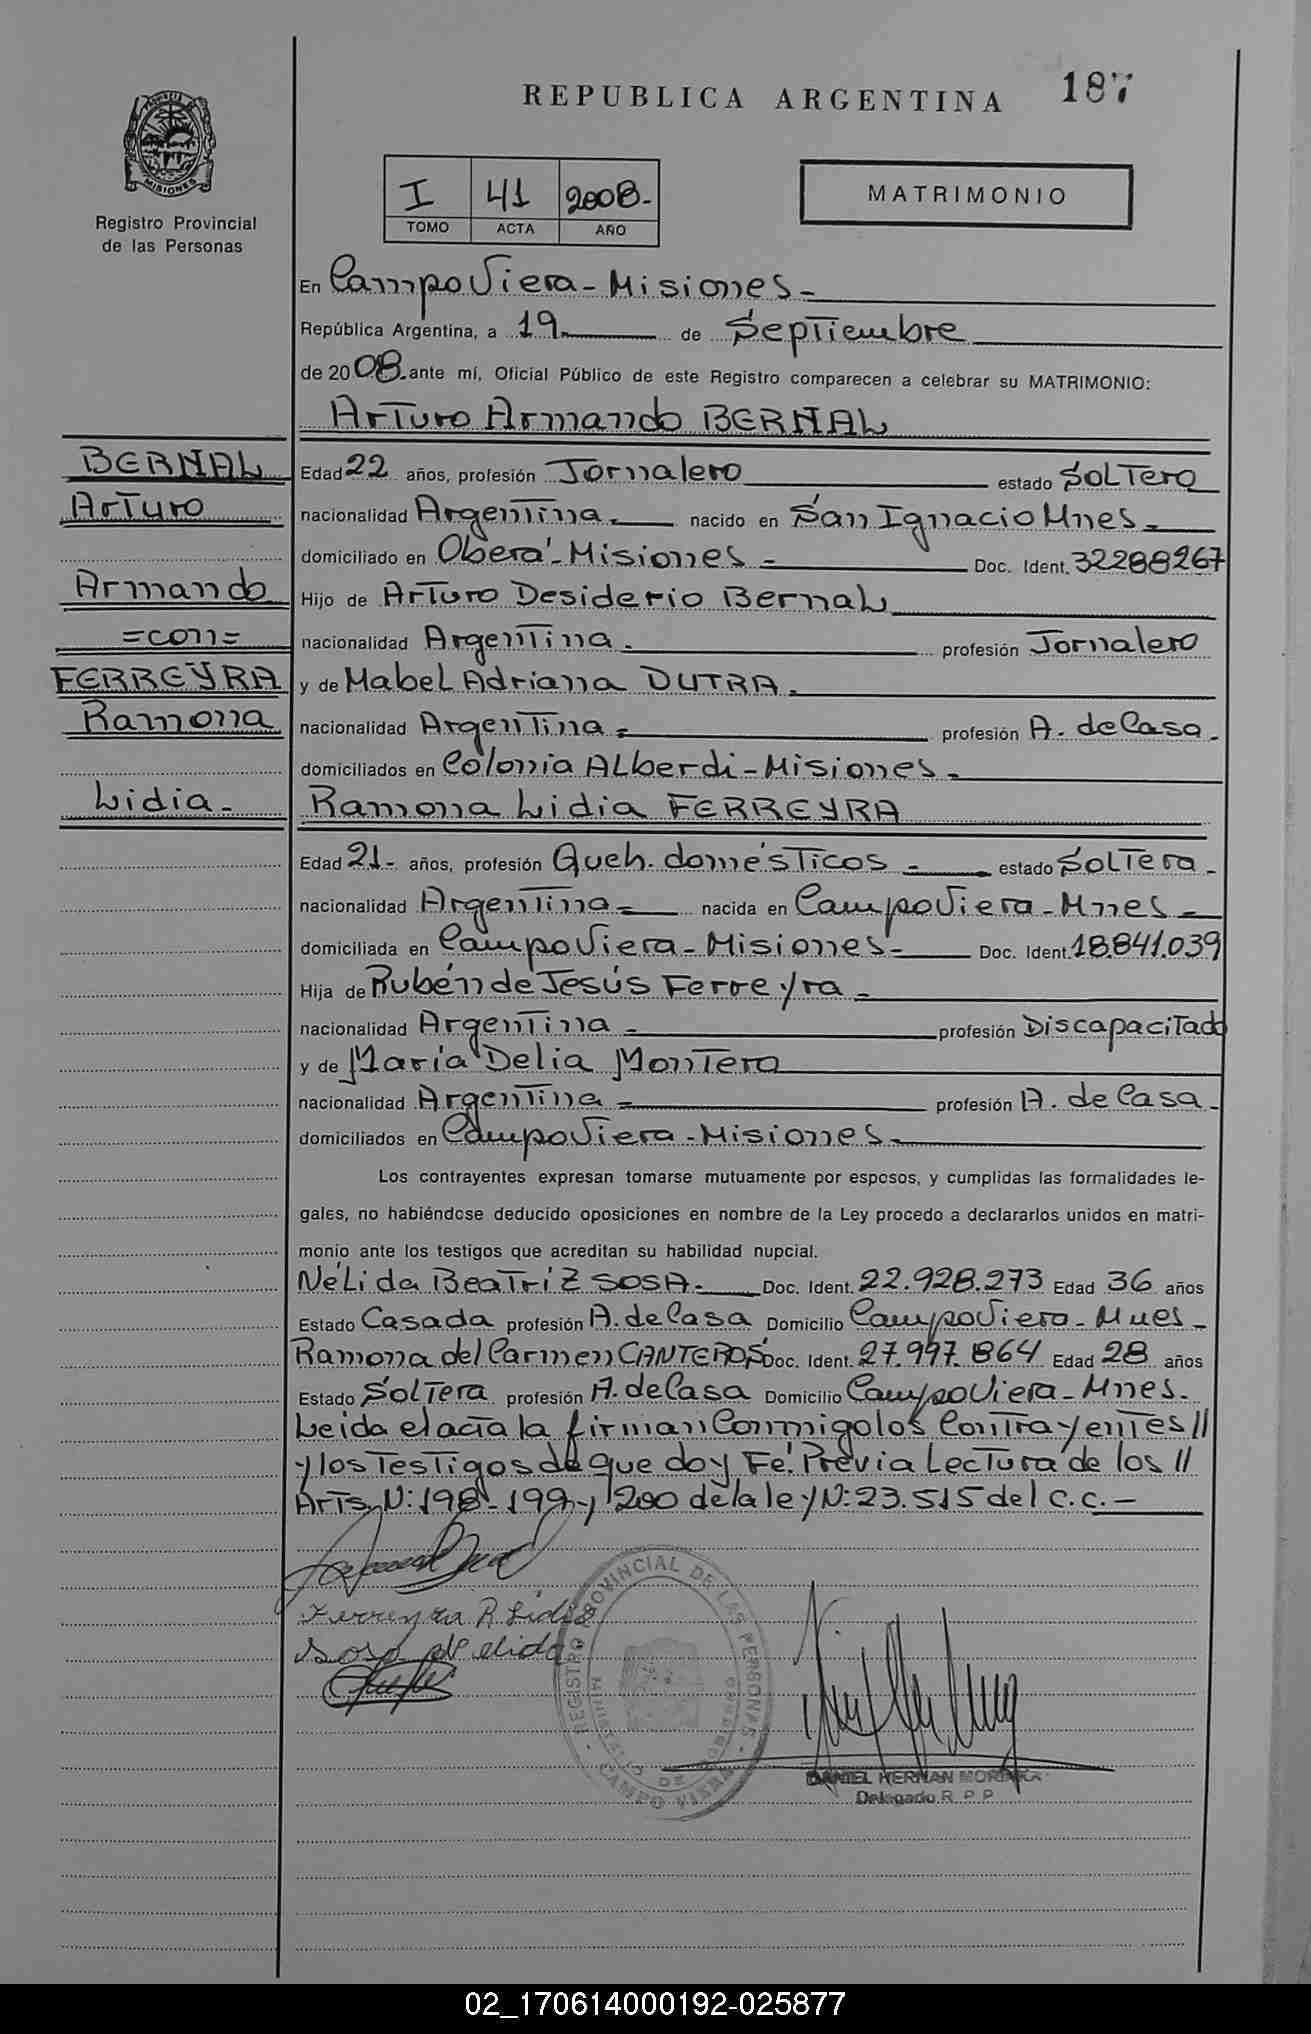 REPUBLICA ARGENTINA 187
PROVINCIA DE MISIONES
Registro Provincial
de las Personas
I 41 2008-
TOMO ACTA AÑO
MATRIMONIO
En Campo Viera - Misiones -
República Argentina, a 19 de Septiembre
de 2008 ante mí, Oficial Público de este Registro comparecen a celebrar su MATRIMONIO:
Arturo Armando BERNAL
BERNAL
Arturo
Armando
=con=
FERREYRA
Ramona
Lidia-
Edad 22 años, profesión Jornalero estado Soltero
nacionalidad Argentina.- nacido en San Ignacio Mnes-
domiciliado en Oberá - Misiones - Doc. Ident. 32288267
Hijo de Arturo Desiderio Bernal
nacionalidad Argentina.- profesión Jornalero
y de Mabel Adriana DUTRA.
nacionalidad Argentina - profesión A. de Casa.
domiciliados en Colonia Alberdi - Misiones -
Ramona Lidia FERREYRA
Edad 21- años, profesión Queh. domésticos - estado Soltera -
nacionalidad Argentina - nacida en Campo Viera - Mnes -
domiciliada en Campo Viera - Misiones - Doc. Ident. 18.841.039
Hija de Rubén de Jesús Ferreyra -
nacionalidad Argentina - profesión Discapacitado
y de María Delia Montero
nacionalidad Argentina - profesión A. de Casa -
domiciliados en Campo Viera - Misiones -
Los contrayentes expresan tomarse mutuamente por esposos, y cumplidas las formalidades le-
gales, no habiéndose deducido oposiciones en nombre de la Ley procedo a declararlos unidos en matri-
monio ante los testigos que acreditan su habilidad nupcial.
Nélida Beatriz SOSA - Doc. Ident. 22.928.273 Edad 36 años
Estado Casada profesión A. de Casa Domicilio Campo Viera - Mnes -
Ramona del Carmen CANTEROS Doc. Ident. 27.997.864 Edad 28 años
Estado Soltera profesión A. de Casa Domicilio Campo Viera - Mnes.
Leida el acta la firman Conmigo los Contrayentes //
y los Testigos de que doy Fé. Previa Lectura de los //
Arts. N: 198 - 199 y 200 de la ley N: 23.515 del C.C. -
Ferreyra R Lidia
Sosa Nelida
REGISTRO PROVINCIAL DE LAS PERSONAS
MINISTERIO DE GOBIERNO
CAMPO VIERA
DANIEL HERNAN
Delegado R. P. P.
02_170614000192-025877